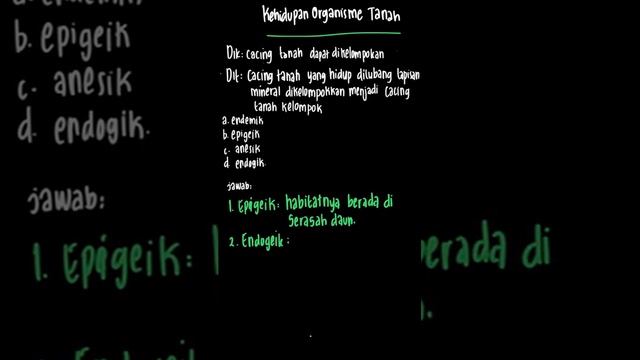 Kehidupan Organisme Tanah
Dik: Cacing tanah dapat dikelompokan
Dit: Cacing tanah yang hidup dilubang lapisan
mineral dikelompokkan menjadi cacing
tanah kelompok
a. endemik
b. epigeik
c. anesik
d. endogik.
jawab:
1. Epigeik: habitatnya berada di
Serasah daun.
2. Endogeik:
b. epigeik
c. anesik
d. endogik.
jawab:
1. Epigeik:
berada di